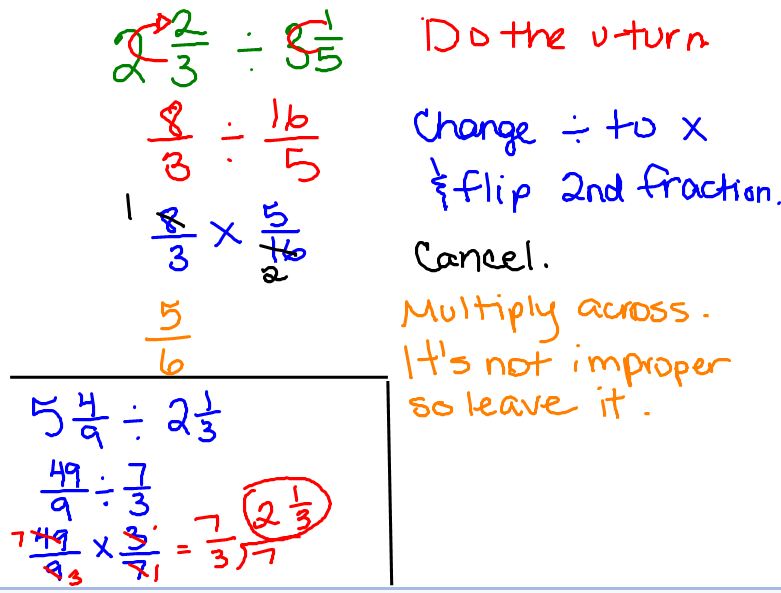 2 2/3 ÷ 3 1/5 Do the u-turn
8/3 ÷ 16/5 Change ÷ to x
& flip 2nd fraction.
1 8/3 x 5/16 2 Cancel.
5/6 Multiply across.
It's not improper
so leave it.
5 4/9 ÷ 2 1/3
49/9 ÷ 7/3
7 49/9 3 x 3/7 1 1 = 7/3 3)7 2 1/3